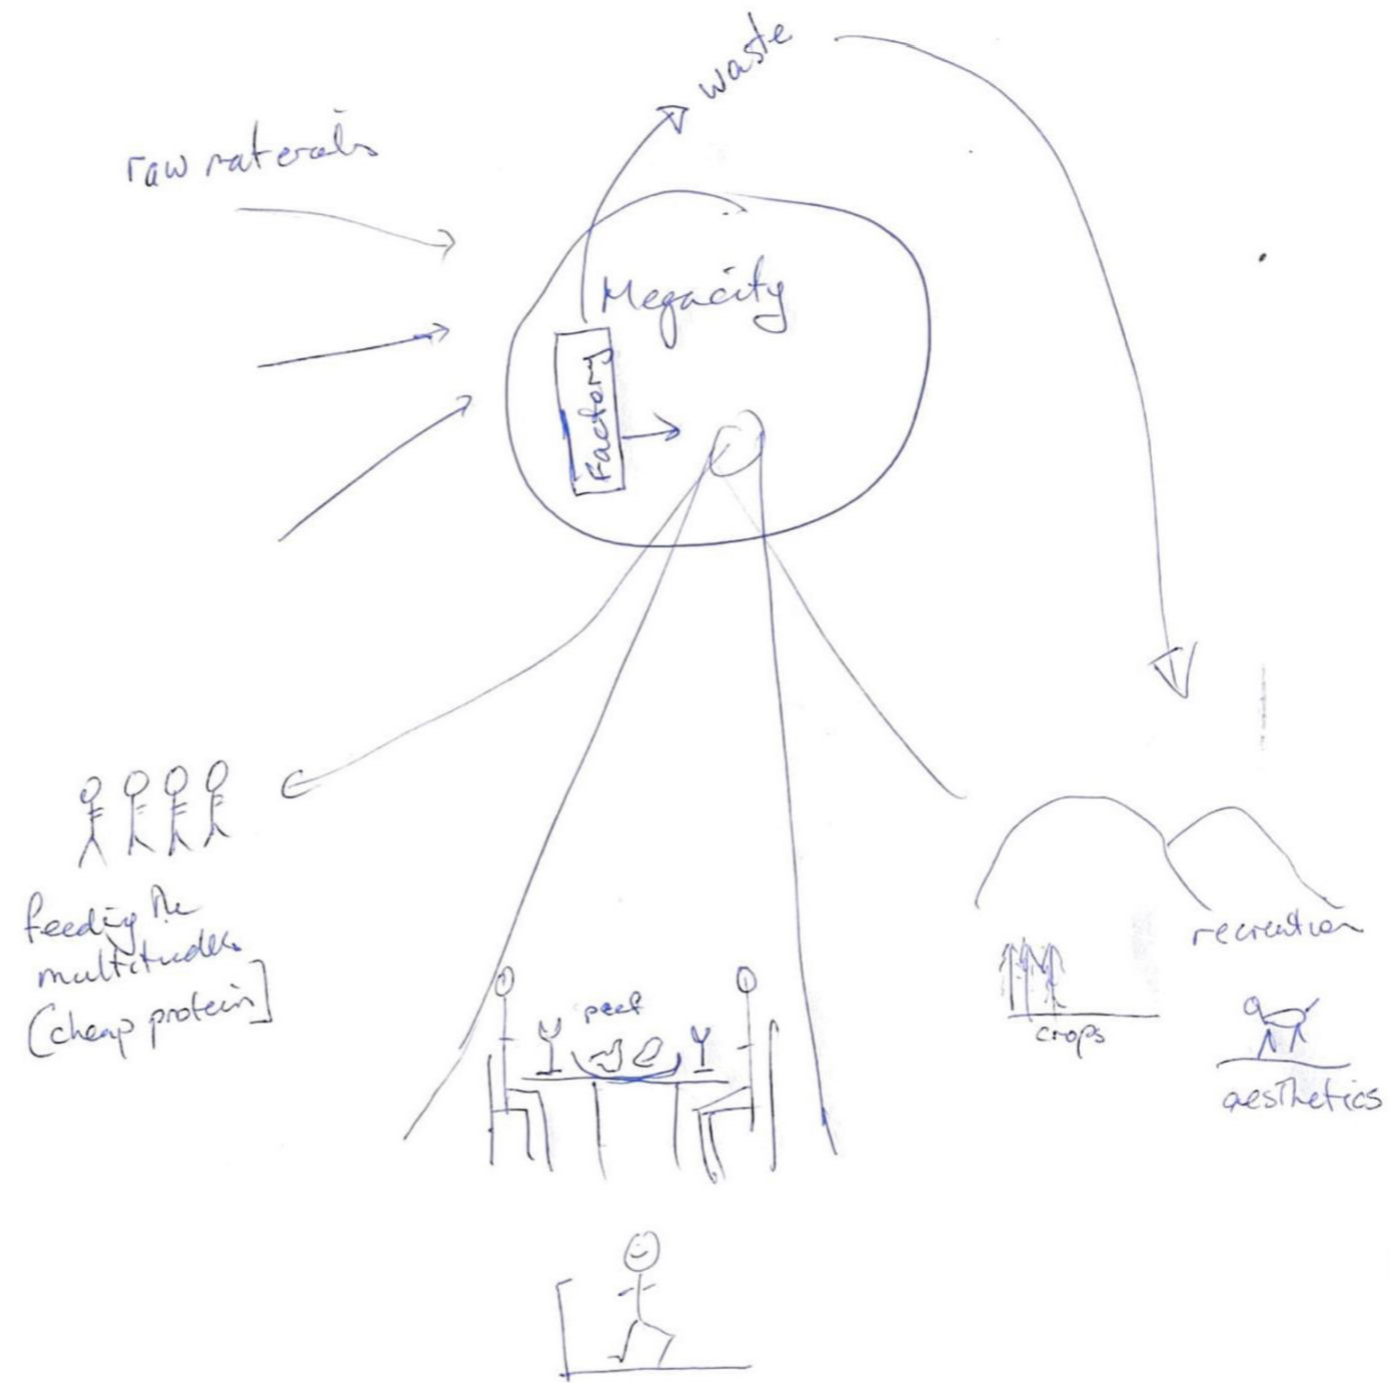 waste
raw materials
Megacity
Factory
feeding the
multitudes
[cheap protein]
recreation
crops
aesthetics